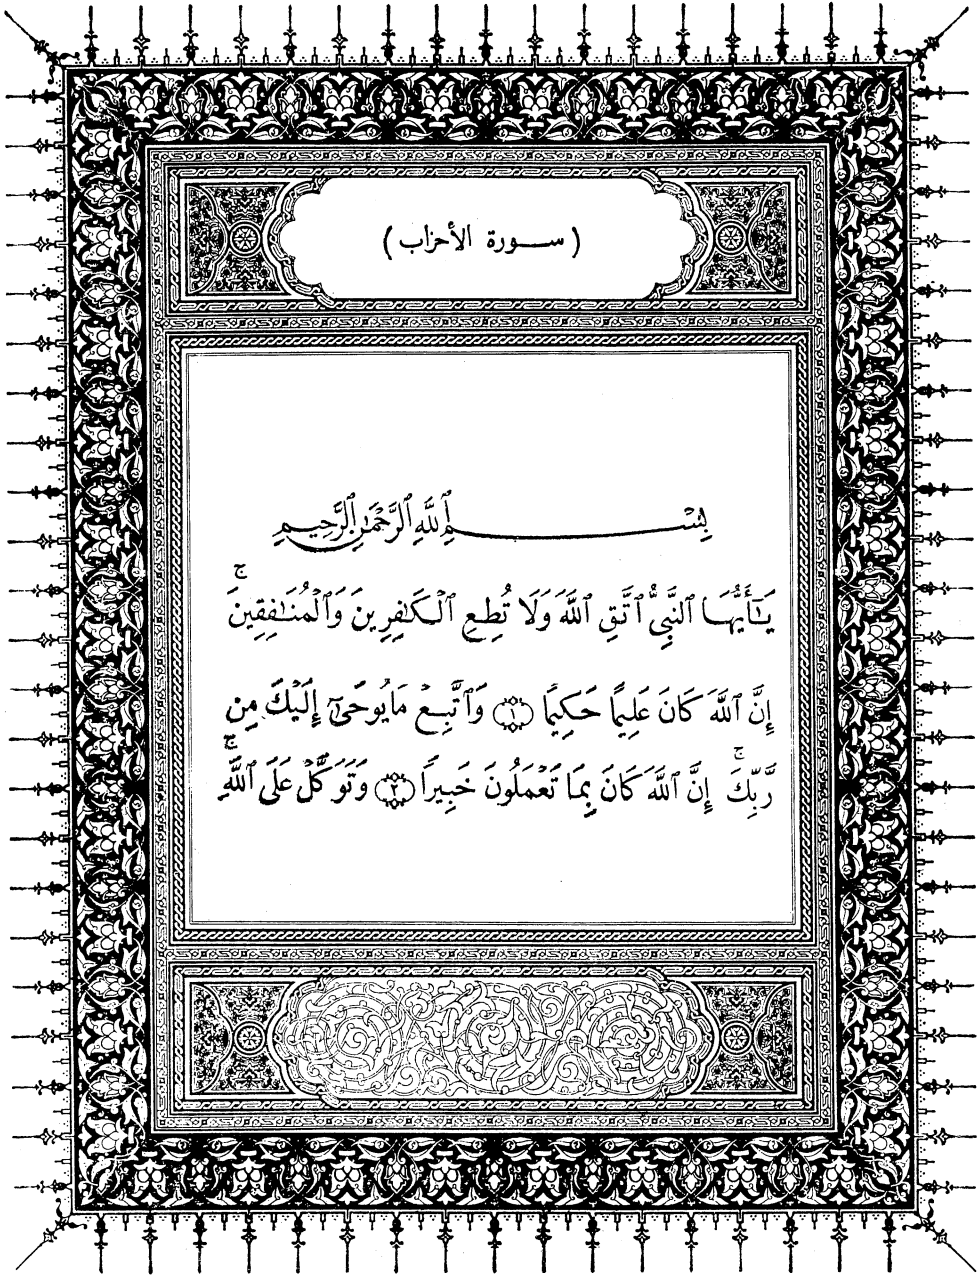 ( سورة الأحزاب )
بِسْمِ ٱللَّهِ ٱلرَّحْمَٰنِ ٱلرَّحِيمِ
يَٰٓأَيُّهَا ٱلنَّبِىُّ ٱتَّقِ ٱللَّهَ وَلَا تُطِعِ ٱلْكَٰفِرِينَ وَٱلْمُنَٰفِقِينَ ۚ
إِنَّ ٱللَّهَ كَانَ عَلِيمًا حَكِيمًا ۝١ وَٱتَّبِعْ مَا يُوحَىٰٓ إِلَيْكَ مِن
رَّبِّكَ ۚ إِنَّ ٱللَّهَ كَانَ بِمَا تَعْمَلُونَ خَبِيرًا ۝٢ وَتَوَكَّلْ عَلَى ٱللَّهِ ۚ